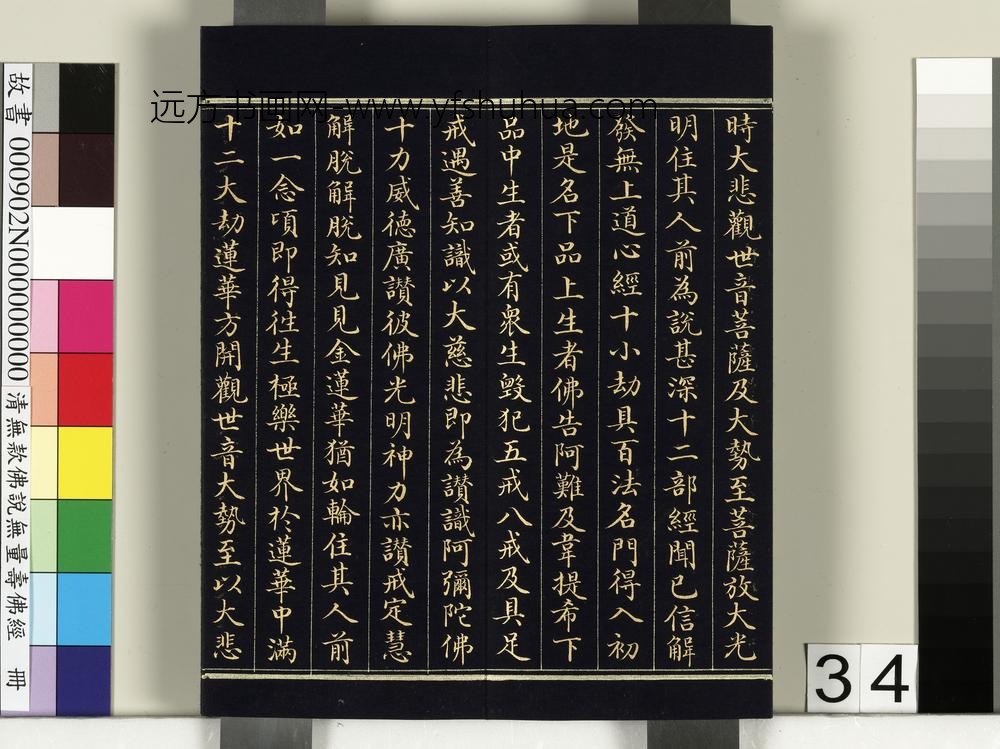 時大悲觀世音菩薩及大勢至菩薩放大光
明住其人前為說甚深十二部經聞已信解
發無上道心經十小劫具百法名門得入初
地是名下品上生者佛告阿難及韋提希下
品中生者或有眾生毀犯五戒八戒及具足
戒遇善知識以大慈悲即為讚識阿彌陀佛
十力威德廣讚彼佛光明神力亦讚戒定慧
解脫解脫知見見金蓮華猶如輪住其人前
如一念頃即得往生極樂世界於蓮華中滿
十二大劫蓮華方開觀世音大勢至以大悲
远方书画网-www.yfshuhua.com
故書 000902N000000000 清無款佛說無量壽佛經 冊
34